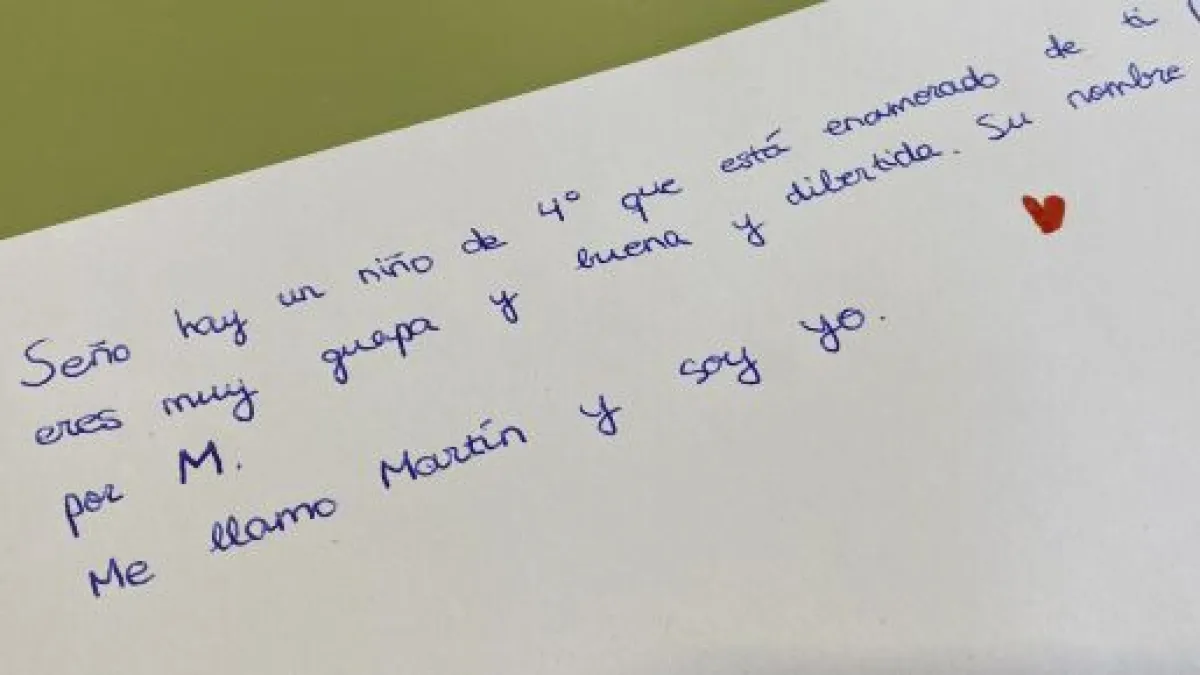 Seño hay un niño de 4º que está enamorado de ti
eres muy guapa y buena y dibertida. Su nombre
por M.
Me llamo Martín y soy yo.